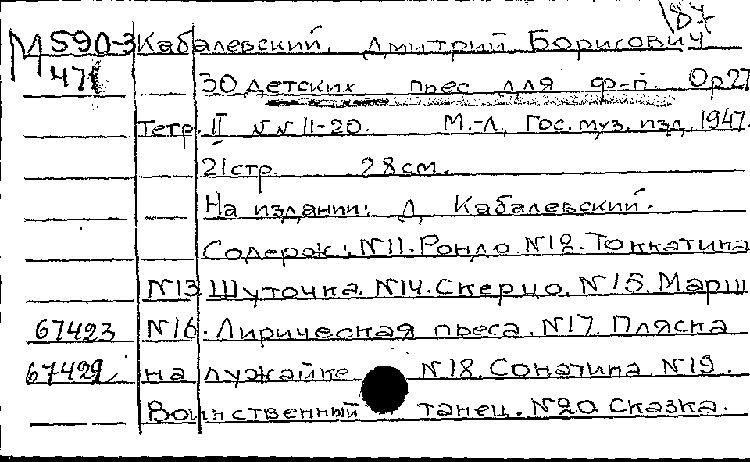 187
М590-3 Кабалевский, Дмитрий Борисович
47
30 детских пьес для ф-п. Op 27
Тетр. II №№ 11-20. М.-Л, Гос. муз. изд, 1947.
21 стр. 28 см.
На издании: Д. Кабалевский.
Содерж: №11. Рондо №12. Токкатина
№13 Шуточка. №14. Скерцо. №15. Марш
67423 №16. Лирическая пьеса. №17 Пляска
67429 на лужайке №18. Сонатина №19.
Воинственный танец. №20 Сказка.